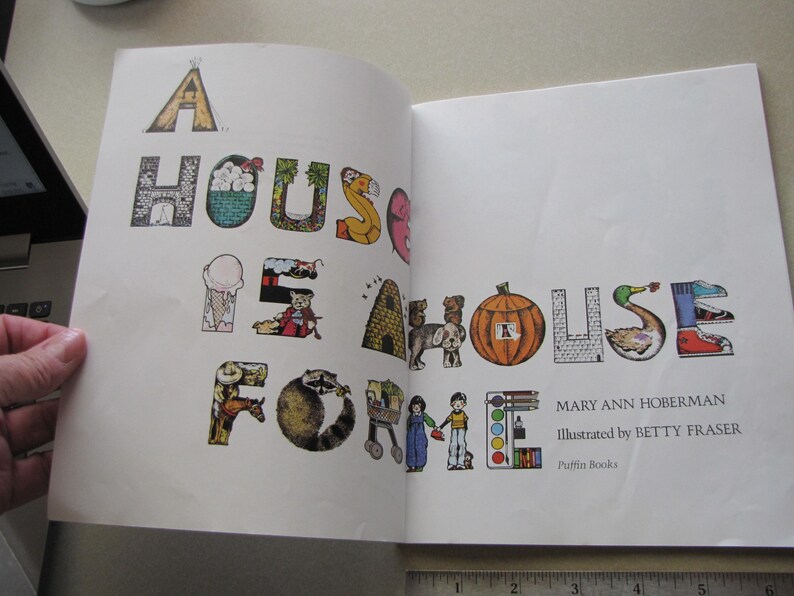 A
HOUSE
IS A HOUSE
FOR ME
MARY ANN HOBERMAN
Illustrated by BETTY FRASER
Puffin Books
1 2 3 4 5 6